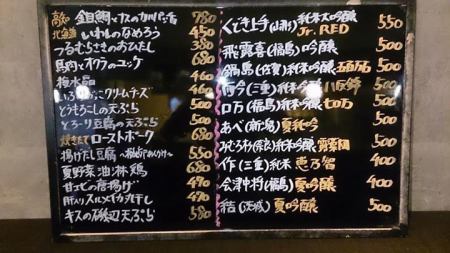 金目鯛とナスの 780
北海道 いわしのなめろう 450
つるむらさきのおひたし 380
馬肉とオクラのユッケ 680
梅水晶 460
クリームチーズ 460
とうもろこしの天ぷら 500
とろーり豆腐の天ぷら 500
ローストポーク 680
揚げだし豆腐 550
夏野菜油淋鶏 680
甘エビの唐揚げ 470
肝入りスルメイカ丸干し 470
キスの磯辺天ぷら 580
くどき上手(山形)純米大吟醸 Jr. RED 550
飛露喜(福島)吟醸 500
鍋島(佐賀)純米吟醸 五百万石 500
而今(三重)純米吟醸 八反錦 500
ロ万(福島)純吟 七ロ万 500
あべ(新潟)夏純吟 500
みむろ杉(奈良)純米吟醸 露葉風 500
作(三重)純米 恵乃智 400
会津中将(福島)夏吟醸 400
結(茨城)夏吟醸 500